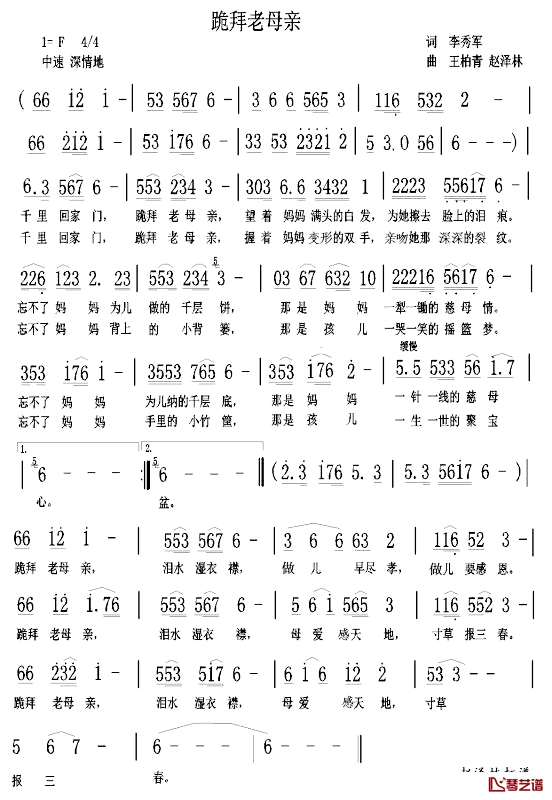 跪拜老母亲
1= F 4/4 词 李秀军
中速 深情地 曲 王柏青 赵泽林
( 66 12 1 - | 53 567 6 - | 3 6 6 565 3 | 116 532 2 - |
66 212 1 - | 53 176 6 - | 33 53 2321 2 | 5 3.0 56 | 6 - - ) |
6.3 567 6 - | 553 234 3 - | 303 6.6 3432 1 | 2223 55617 6 - |
千里 回家 门， 跪拜 老母 亲， 望着 妈妈 满头的白 发， 为她擦去 脸上的泪 痕。
千里 回家 门， 跪拜 老母 亲， 握着 妈妈 变形的双 手， 亲吻她那 深深的裂 纹。
226 123 2. 23 | 553 234 3 - | 03 67 632 10 | 22216 5617 6 - |
忘不了 妈 妈 为儿 做的 千层 饼， 那 是 妈妈 一犁一锄的 慈母 情。
忘不了 妈 妈 背上 的 小背 篓， 那 是 孩 儿 一哭一笑的 摇篮 梦。
缓慢
353 176 1 - | 3553 765 6 - | 353 176 2 - | 5.5 533 56 1.7 |
忘不了 妈 妈 为儿纳的千层 底， 那是 妈 妈 一针 一线的 慈母
忘不了 妈 妈 手里的 小竹 筐， 那是 孩 儿 一生 一世的 聚宝
1. 2.
5 6 - - :‖ 5 6 - - ‖ (2.3 176 5. 3 | 5.3 5617 6 - ) |
心。 盆。
66 12 1 - | 553 567 6 - | 3 6 6 63 2 | 116 52 3 - |
跪拜 老母 亲， 泪水 湿衣 襟， 做 儿 早尽 孝， 做儿 要感 恩。
66 12 1.76 | 553 567 6 - | 5 6 1 565 3 | 116 552 3 - |
跪拜 老母 亲， 泪水 湿衣 襟， 母 爱 感天 地， 寸草 报三 春。
66 232 2 - | 553 517 6 - | 5 6 1 653 5 | 556 - |
跪拜 老母 亲， 泪水 湿衣 襟， 母 爱 感天 地， 寸草
5 6 7 - | 6 - - - | 6 - - - ‖
报 三 春。
琴艺谱